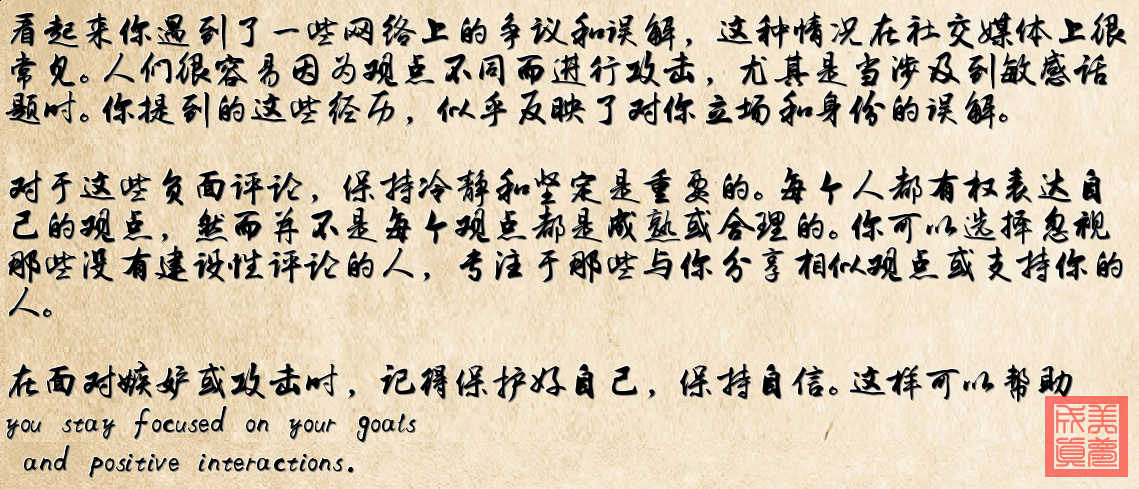 看起来你遇到了一些网络上的争议和误解，这种情况在社交媒体上很
常见。人们很容易因为观点不同而进行攻击，尤其是当涉及到敏感话
题时。你提到的这些经历，似乎反映了对你立场和身份的误解。
对于这些负面评论，保持冷静和坚定是重要的。每个人都有权表达自
己的观点，然而并不是每个观点都是成熟或合理的。你可以选择忽视
那些没有建设性评论的人，专注于那些与你分享相似观点或支持你的
人。
在面对嫉妒或攻击时，记得保护好自己，保持自信。这样可以帮助
you stay focused on your goals
and positive interactions.
美梦
成真